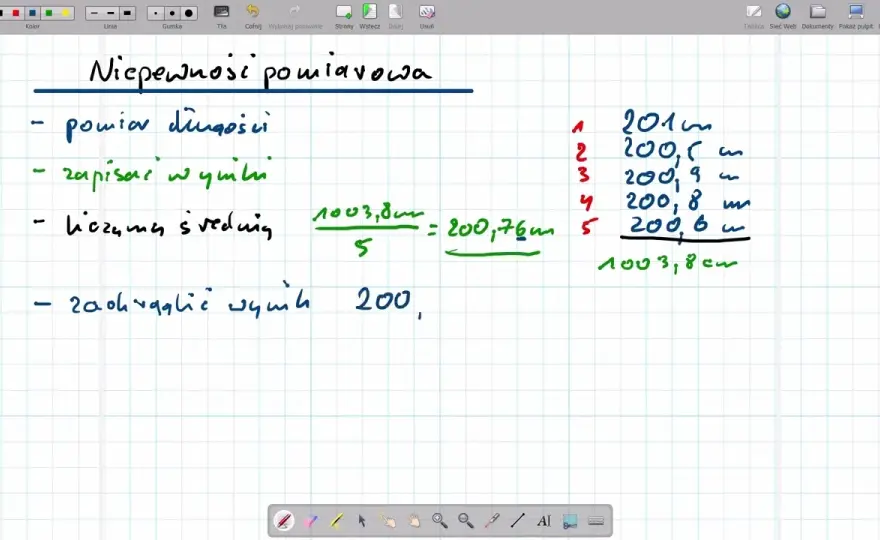 Kolor
Linie
Gumka
Tła
Cofnij
Wykonaj ponownie
Strony
Wstecz
Dalej
Usuń
Tablica
Sieć Web
Dokumenty
Pokaż pulpit
Niepewność pomiarowa
- pomiar długości
- zapisać wyniki
- liczymy średnią 1003,8cm / 5 = 200,76cm
- zaokrąglić wynik 200,
1 201cm
2 200,5 cm
3 200,9 cm
4 200,8 cm
5 200,6 cm
1003,8cm
AI